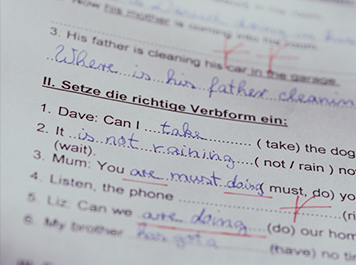 Now his mother is coming into the room.
3. His father is cleaning his car in the garage.
Where is his father cleanin
II. Setze die richtige Verbform ein:
1. Dave: Can I ....take.......... ( take) the dog
2. It ..is not raining....( not / rain ) no
(wait).
3. Mum: You are must doing must, do) yo
4. Listen, the phone ..............................(ri
5. Liz: Can we ....are doing....(do) our hom
6. My brother has got a (have) no ti